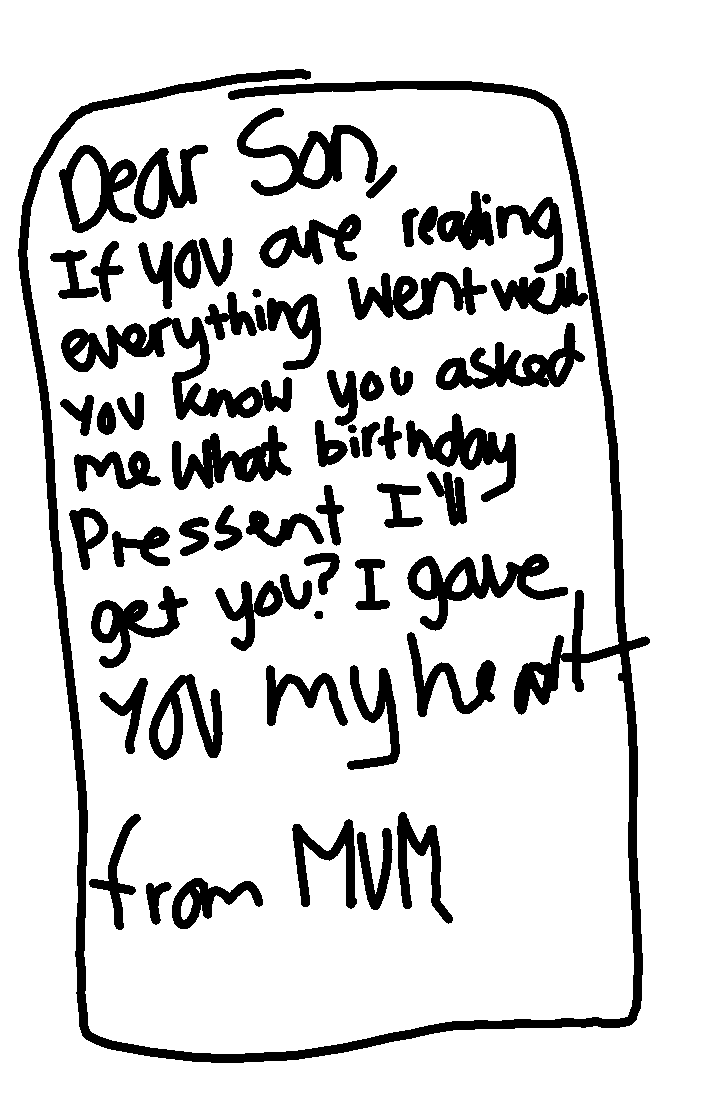 Dear Son,
If you are reading
everything went well
you know you asked
me what birthday
Pressent I'll
get you? I gave
you my heart
from MUM